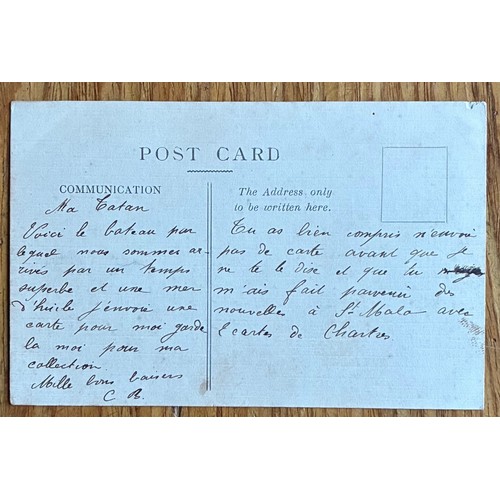 POST CARD
COMMUNICATION
The Address only
to be written here.
Ma Tatan
Voici le bateau par
lequel nous sommer ar
rivés par un temps
superbe et une mer
d'huile j'envoie une
carte pour moi garde
la moi pour ma
collection
Mille bons baisers
C R.
Tu as bien compris n'envoie
pas de carte avant que je
ne te le dise et que tu
m'ais fait parvenir des
nouvelles à St Malo avec
cartes de Chartres